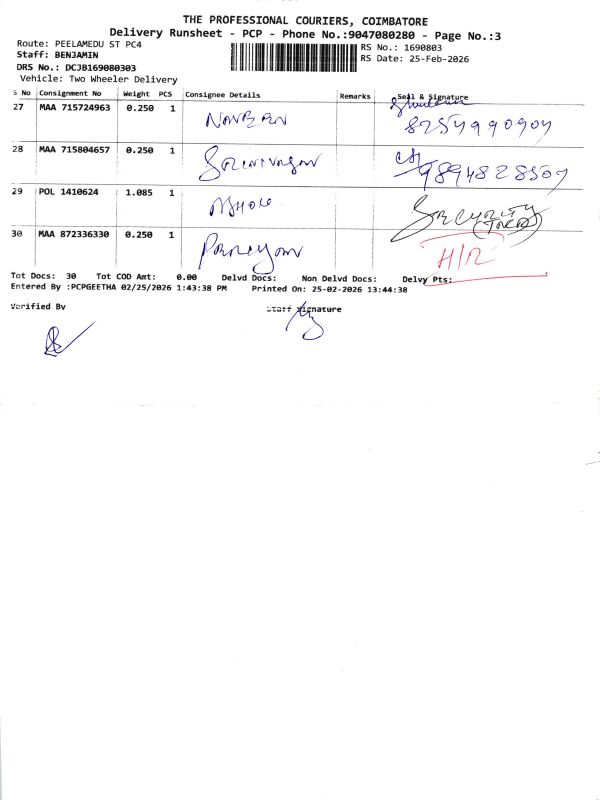 THE PROFESSIONAL COURIERS, COIMBATORE
Delivery Runsheet - PCP - Phone No.:9047080280 - Page No.:3
Route: PEELAMEDU ST PC4
Staff: BENJAMIN
DRS No.: DCJB169080303
Vehicle: Two Wheeler Delivery
RS No.: 1690803
RS Date: 25-Feb-2026
S No Consignment No Weight PCS Consignee Details Remarks Seal & Signature
27 MAA 715724963 0.250 1 NAVEEN
28 MAA 715804657 0.250 1 9894828507
29 POL 1410624 1.085 1 ASHOK SECURITY
30 MAA 872336330 0.250 1 H/R
Tot Docs: 30 Tot COD Amt: 0.00 Delvd Docs: Non Delvd Docs: Delvy Pts:
Entered By :PCPGEETHA 02/25/2026 1:43:38 PM Printed On: 25-02-2026 13:44:38
Verified By Staff Signature